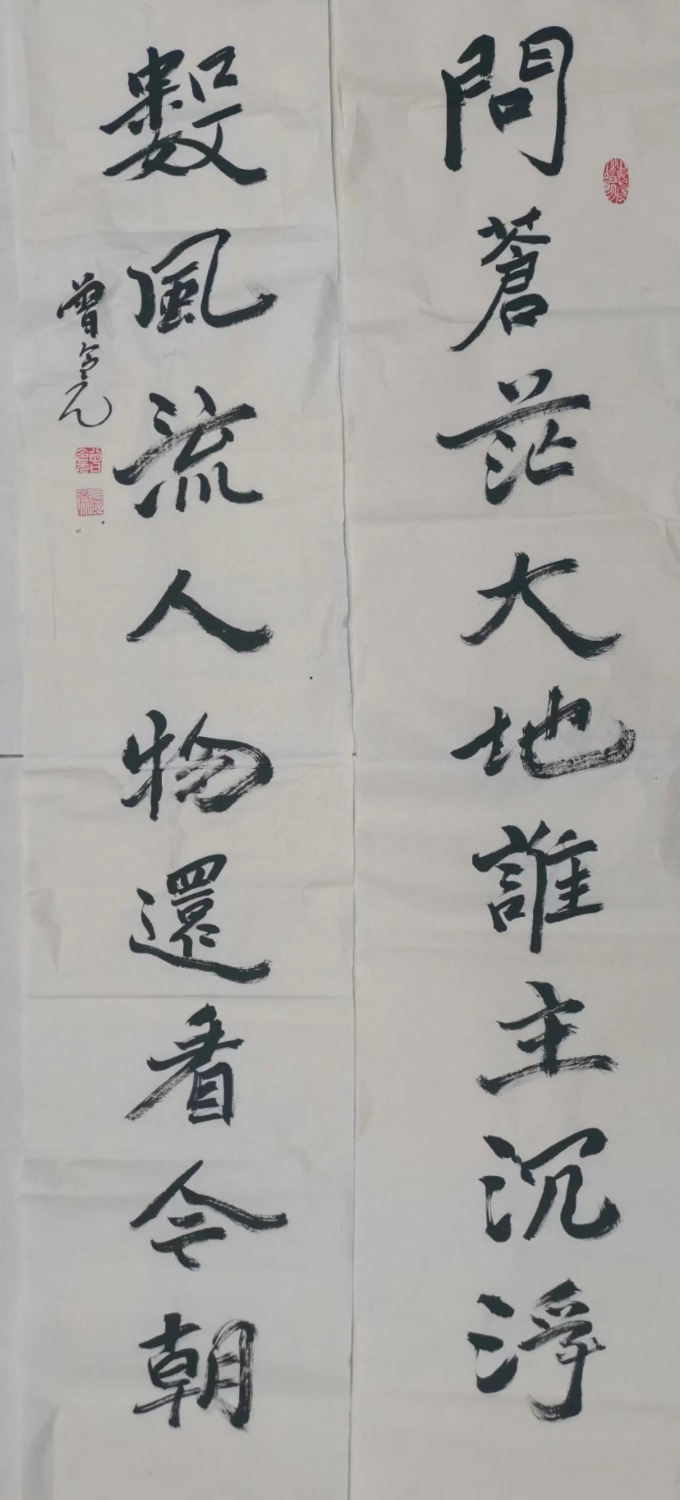 問蒼茫大地誰主沉浮
數風流人物還看今朝
曾令